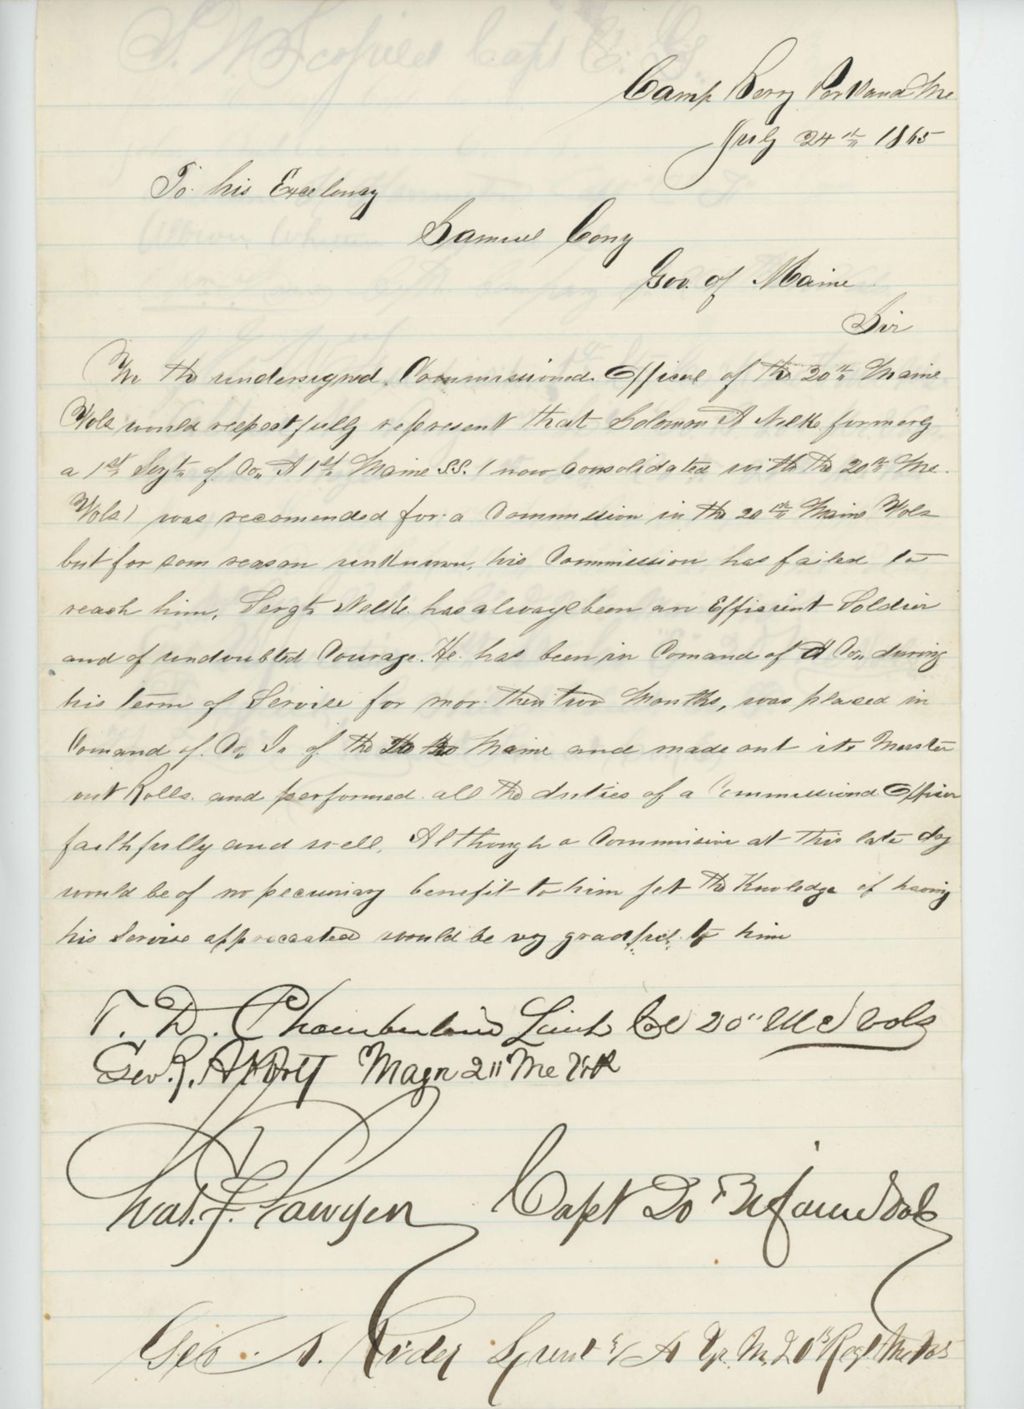 Camp Berry Portland Me
July 24th 1865
To his Excelency
Samuel Cony
Gov. of Maine
Sir
We the undersigned, Commissioned Officers of the 20th Maine
Vols would respectfully represent that Solomon A Nelke formerly
a 1st Sergt. of Co. A 1st Maine S.S. (now consolidated with the 20th Me.
Vols) was recomended for a Commission in the 20th Maine Vols
but for som reason unknown, his Commission has failed to
reach him, Sergt Nelke has always been an Efficient Soldier
and of undoubted Courage. He has been in Comand of A Co. during
his term of Servise for mor then two Months, was placed in
Comand of Co. I. of the 20 Maine and made out its Muster
out Rolls. and performed all the duties of a Commissiond Officer
faithfully and well. Although a Commission at this late day
would be of no pecuniary benefit to him yet the Knowledge of having
his Servise appreceated would be vry to him
T. D. Chamberlain Lieut Col 20" Me Vols
Geo. R. Abbott Major 20 Me Vols
Chas. F. Sawyer Capt 20" Maine Vols
Geo. A. 20th Regt Me Vols